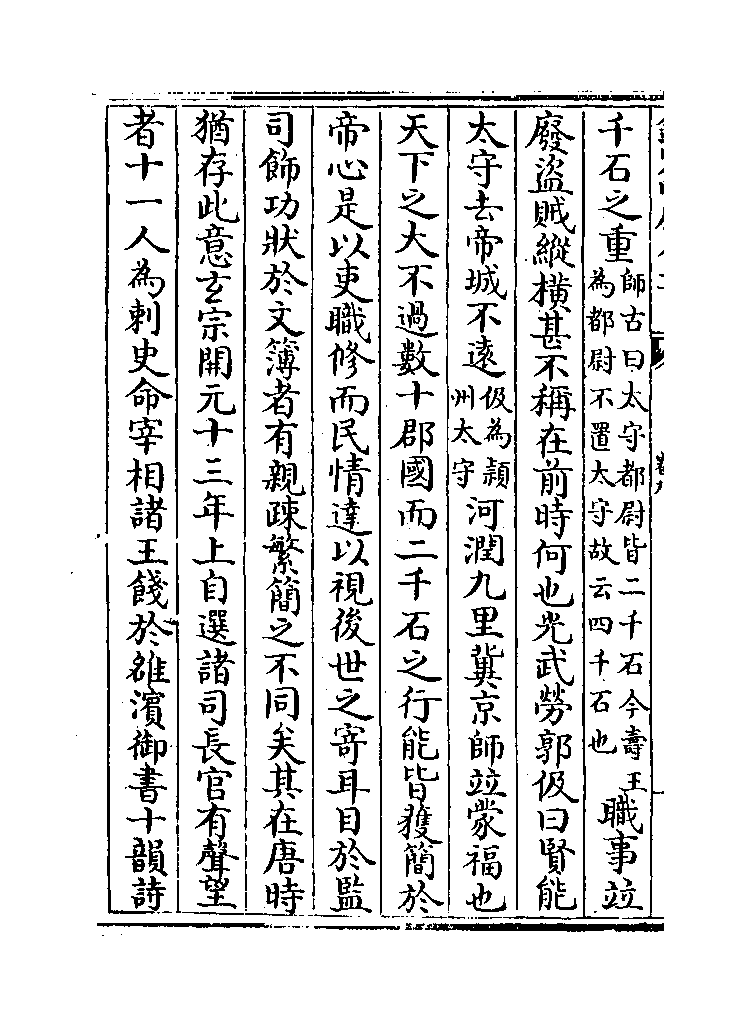 千石之重師古曰太守都尉皆二千石今壽王為都尉不置太守故云四千石也職事竝
廢盜賊縱橫甚不稱在前時何也光武勞郭伋曰賢能
太守去帝城不遠伋為潁州太守河潤九里冀京師竝蒙福也
天下之大不過數十郡國而二千石之行能皆獲簡於
帝心是以吏職修而民情達以視後世之寄耳目於監
司飾功狀於文簿者有親疎繁簡之不同矣其在唐時
猶存此意玄宗開元十三年上自選諸司長官有聲望
者十一人為刺史命宰相諸王餞於雒濱御書十韻詩